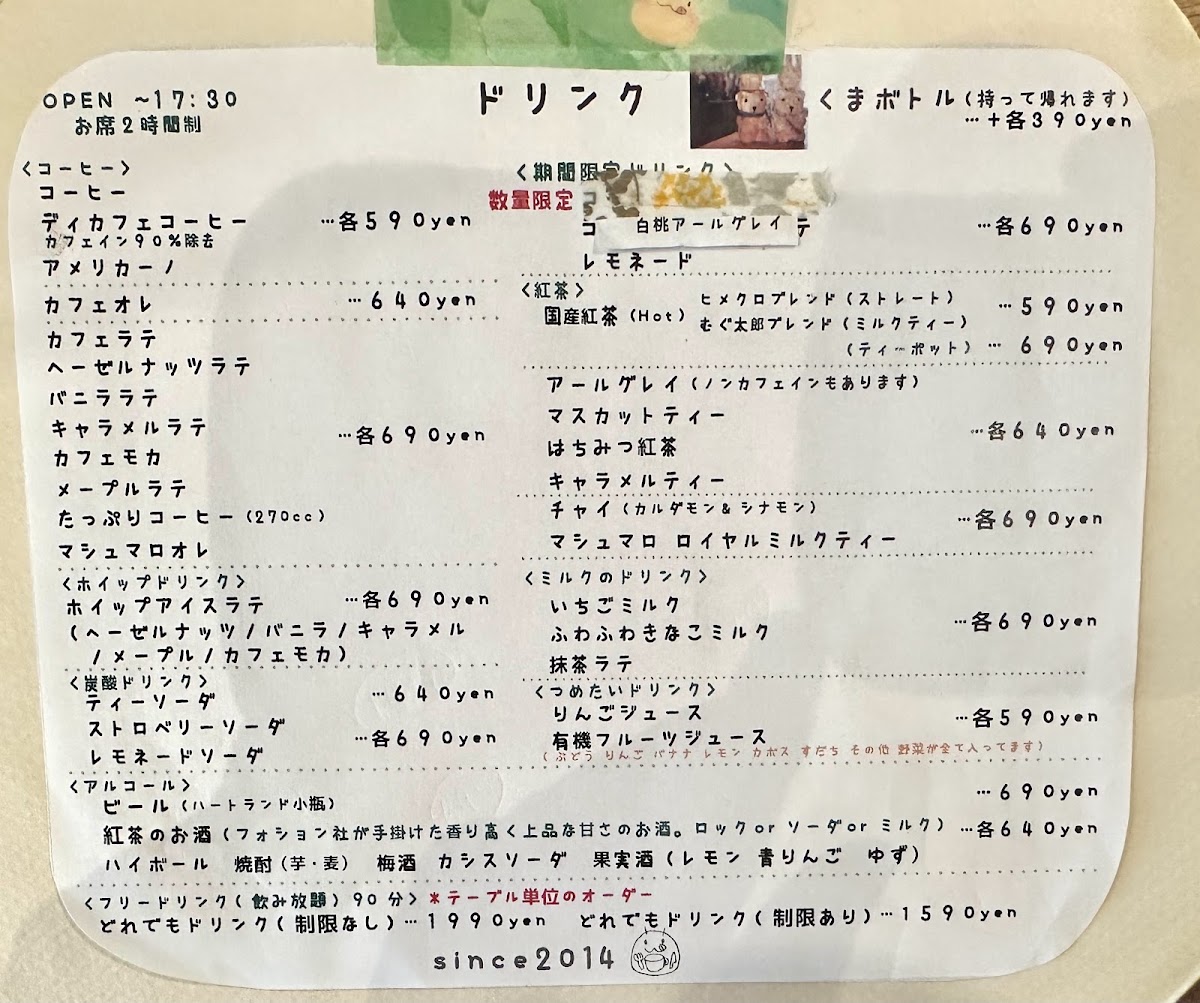 OPEN ~17:30
お席2時間制
ドリンク
くまボトル(持って帰れます)
…+各390yen
<コーヒー>
コーヒー
ディカフェコーヒー …各590yen
カフェイン90%除去
アメリカーノ
カフェオレ …640yen
カフェラテ
ヘーゼルナッツラテ
バニララテ
キャラメルラテ …各690yen
カフェモカ
メープルラテ
たっぷりコーヒー(270cc)
マシュマロオレ
<ホイップドリンク>
ホイップアイスラテ …各690yen
(ヘーゼルナッツ/バニラ/キャラメル
/メープル/カフェモカ)
<炭酸ドリンク>
ティーソーダ …640yen
ストロベリーソーダ …各690yen
レモネードソーダ
<期間限定ドリンク>
数量限定
白桃アールグレイ …各690yen
レモネード
<紅茶>
国産紅茶(Hot) ヒメクロブレンド(ストレート) …590yen
むぐ太郎ブレンド(ミルクティー)
(ティーポット) …690yen
アールグレイ(ノンカフェインもあります)
マスカットティー …各640yen
はちみつ紅茶
キャラメルティー
チャイ(カルダモン&シナモン) …各690yen
マシュマロ ロイヤルミルクティー
<ミルクのドリンク>
いちごミルク
ふわふわきなこミルク …各690yen
抹茶ラテ
<つめたいドリンク>
りんごジュース …各590yen
有機フルーツジュース
(ぶどう りんご バナナ レモン カボス すだち その他 野菜が全て入ってます)
<アルコール>
ビール(ハートランド小瓶) …690yen
紅茶のお酒(フォション社が手掛けた香り高く上品な甘さのお酒。ロックorソーダorミルク) …各640yen
ハイボール 焼酎(芋・麦) 梅酒 カシスソーダ 果実酒(レモン 青りんご ゆず)
<フリードリンク(飲み放題)90分> *テーブル単位のオーダー
どれでもドリンク(制限なし)…1990yen どれでもドリンク(制限あり)…1590yen
since2014